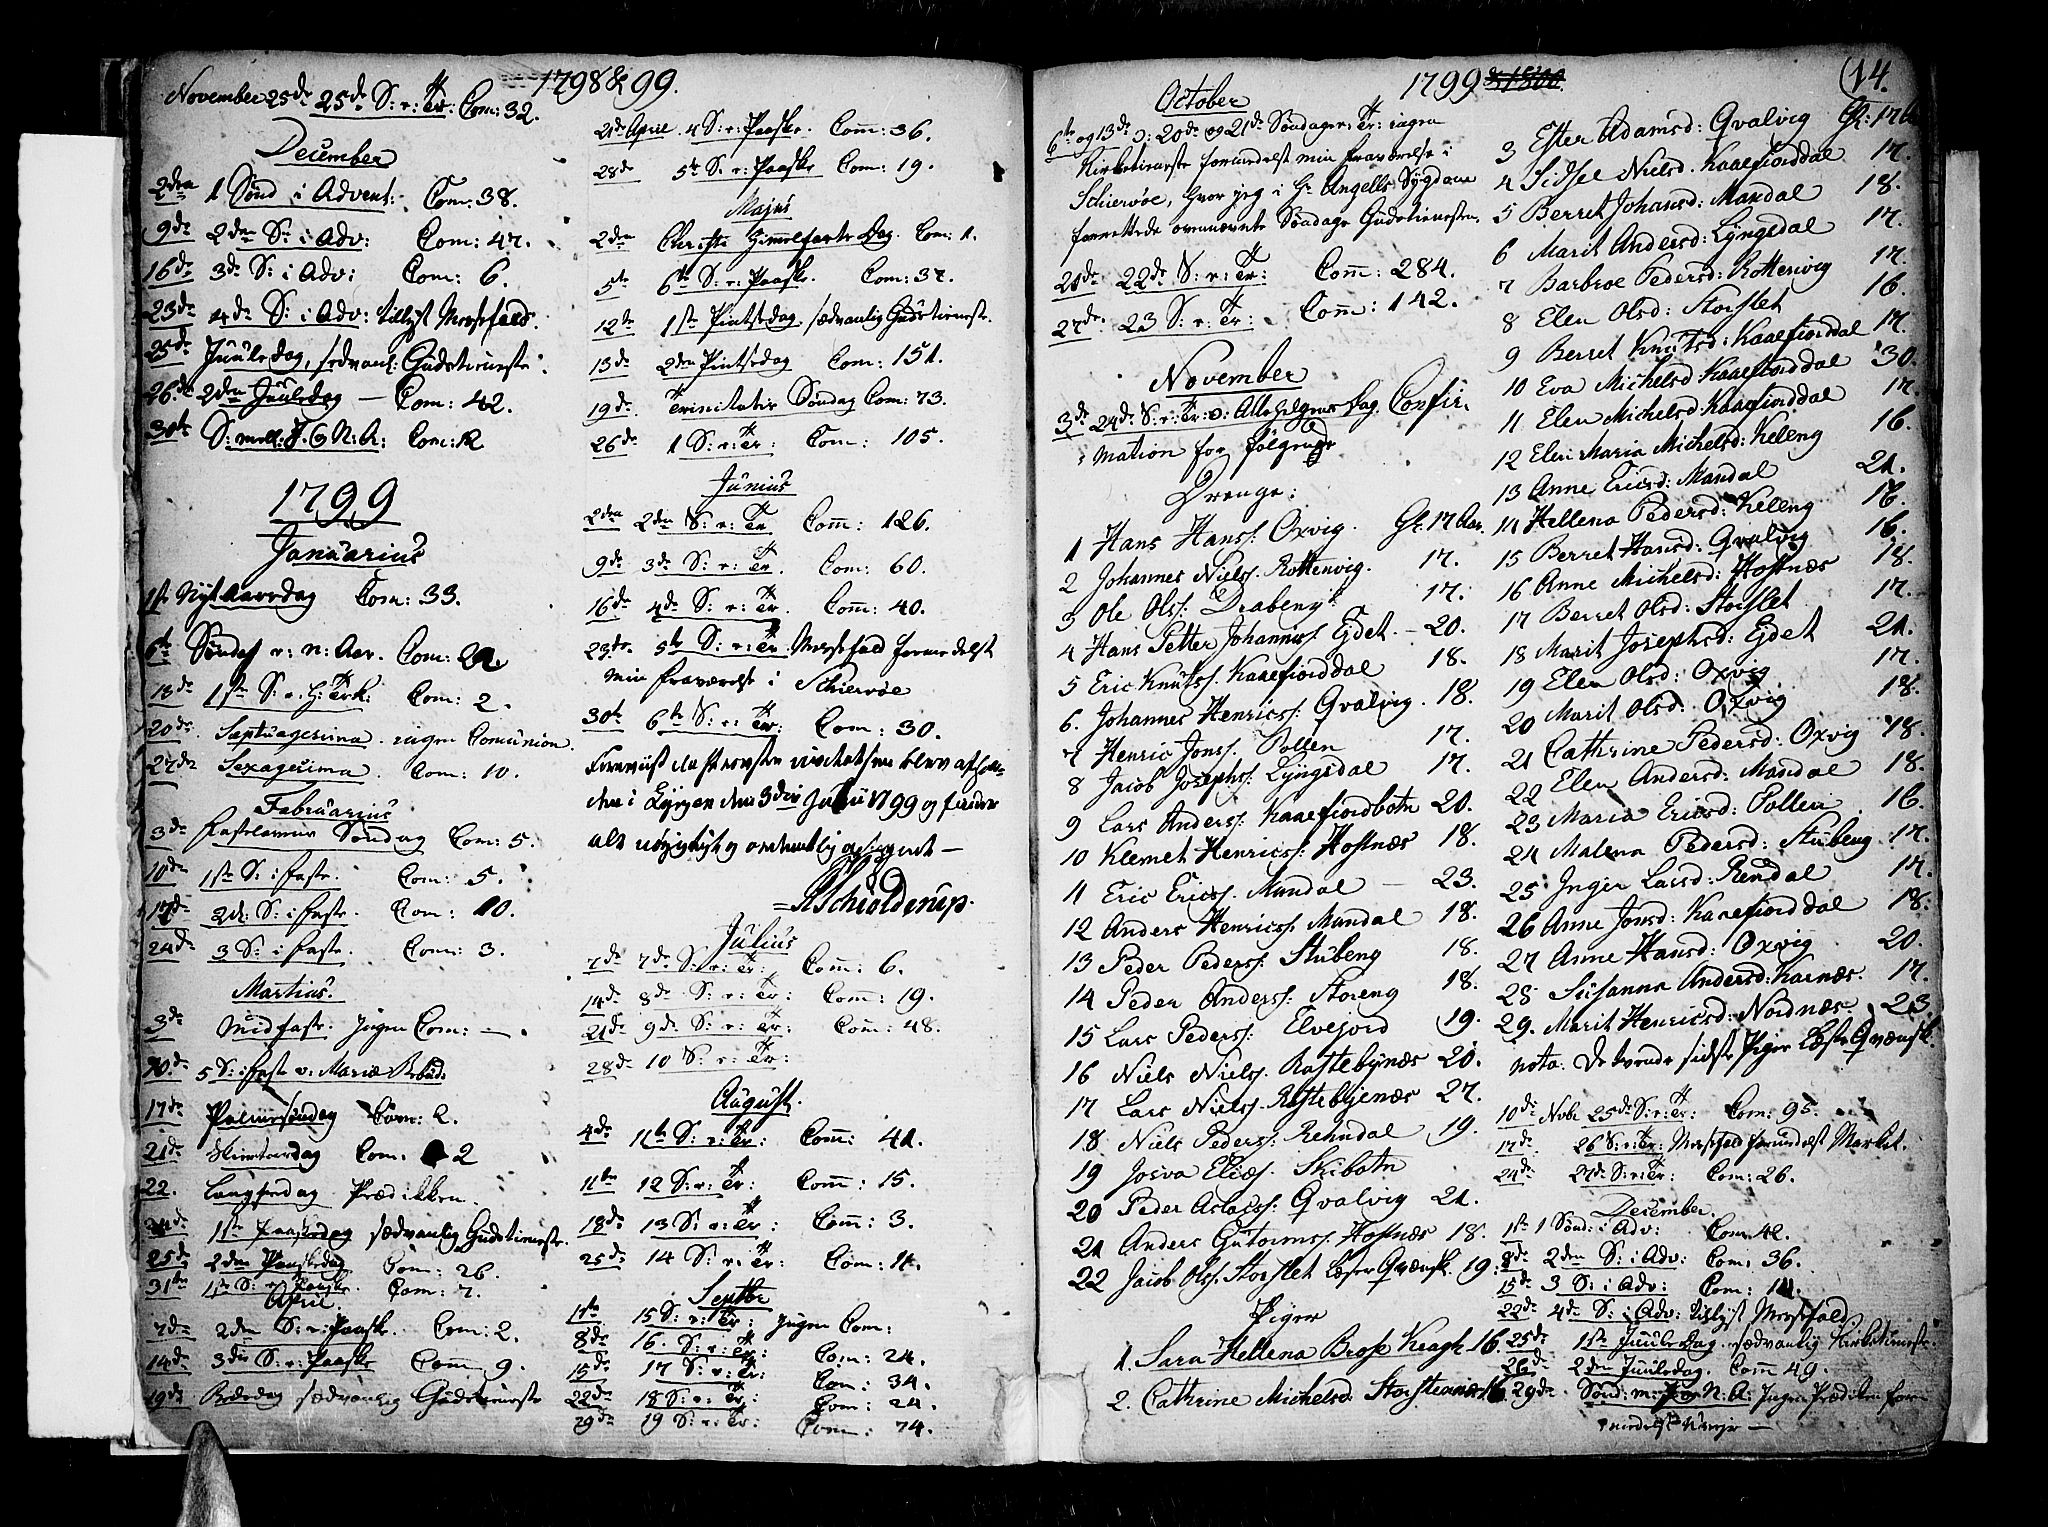 1798 & 99.
November 25de 25de S: v: Tr: Com: 32.
December
2den 1 Sönd i Advent: Com: 38.
9de 2den S: i Adv: Com: 47.
16de 3de S: i Adv: Com: 6.
23de 4de S: i Adv: tillyst Messefald.
25de Juuledag, sædvanl: Gudstieneste.
26de 2den Juuledag — Com: 42.
30te S: mell: J. & N: A: Com: 12
1799
Januarius
1ste Nyt Aarsdag Com: 33.
6te Söndag e: n: Aar. Com:
13de 1ste S. e. H: Trk: Com: 2.
20de Septuagesima. ingen Comunion.
27de Sexagesima. Com: 10.
Februarius
3de Fastelavns Söndag Com: 5.
10de 1ste S: i Faste. Com: 5.
17de 2de S: i Faste. Com: 10.
24de 3 S: i Faste. Com: 3.
Martius.
3de Midfaste. Ingen Com: —
10de 5 S: i Faste v: Mariæ Bebud:
17de Palmesöndag Com: 2.
21de Skiertorsdag Com. 2
22. Langfredag Prædikken.
24de 1ste Paaskedag sædvanlig Gudstieneste.
25de 2den Paaskedag Com: 26.
31te 1ste S: e: Paaske. Com: 7.
April.
7de 2den S: e: Paaske. Com: 2.
14de 3die S: e: Paaske Com 9.
19de Bededag sædvanlig Gudstieneste
21de April. 4 S: e: Paaske. Com: 36.
28de 5te S. e: Paaske Com: 19.
Majus
2den Christi Himmelfarts Dag. Com: 1.
5te 6te S: e: Paaske. Com: 37.
12te 1ste Pintsedag, sædvanlig Gudstieneste.
13de 2den Pintsedag Com: 151.
19de Trinitatis Söndag Com: 73.
26de 1 S: e: Tr: Com: 105.
Junius
2den 2den S: e: Tr Com: 126.
9de 3de S: e: Tr. Com: 60.
16de 4de S: e: Tr. Com: 40.
23de 5te S: e: Tr. Messefald formedelst
min Fraværelse i Schiervöe
30te 6te S: e: Tr: Com: 30.
den i Lyngen den 3die Julii 1799 og finder
alt
Schiolderup.
Julius
7de 7de S: e: Tr: Com: 6.
14de 8de S: e: Tr: Com: 19.
21de 9de S: e: Tr: Com: 48.
28de 10 S: e: Tr:
August.
4de 11te S: e: Tr: Com: 41.
11te 12 S: e: Tr: Com: 15.
18de 13 S: e: Tr: Com: 3.
25de 14 S: e: Tr: Com: 11.
Septbr
1ste 15 S: e: Tr: Ingen Com:
8de 16. S: e: Tr: Com: 24.
15de 17 S: e: Tr: Com: 34.
22de 18 S: e: Tr: Com: 24.
29de 19 S: e: Tr: Com: 74.
1799 & 1800.
14.
October
6te og 13de o: 20de og 21de Söndager e: Tr: ingen
Kirketieneste formedelst min Fraværelse i
Schiervöe, hvor jeg i Hr Angells Sygdom
forrettede ovennævnte Söndage Gudstienesten.
20de 22de S: e: Tr: Com: 284.
27de 23 S: e: Tr: Com: 142.
November
3de 24de S: e: Tr: o: Alle Helgens Dag. Confir,
mation for fölgende
Drenge:
1 Hans Hanss: Oxvig. Gl: 17 Aar.
2 Johannes Nielss. Rottenvig. 17.
3 Ole Olss: Drabeng 17.
4 Hans Petter Johanness: Ejdet. — 20.
5 Eric Knutss. Kaaefjorddal 18.
6. Johannes Henricss: Qvalvig. 18.
7 Henric Jonss. Pollen 17.
8 Jacob Josephss. Lyngsdal 17.
9 Lars Anderss: Kaaefjordbotn 20.
10 Klemet Henricss: Hostnæs 18.
11 Eric Ericss. Mandal — 23.
12 Anders Henricss. Mandal 18.
13 Peder Pederss: Stubeng 18.
14 Peder Anderss: Storeng 18.
15 Lars Pederss. Elvejord 19.
16 Niels Nielss. Rastebynæs 20.
17 Lars Nielss. Rastebynæs 27.
18. Niels Pederss. Rehndal 19.
19 Josva Eliæs. Skibotn
20 Peder Aslacss: Qvalvig 21.
21 Anders Gutormss. Hostnæs 18.
22 Jacob Olss. Storslet Læser Qvænsk. 19.
Piger
1. Sara Hellena Brose Kragh 16.
2. Cathrine Michelsd. 16.
3 Ester Adamsd: Qvalvig Gl: 17
4 Sidsel Nielsd. Kaaefjorddal 17.
5 Berret Johansd: Mandal 18.
6 Marit Andersd: Lyngsdal 17.
7 Barbroe Pedersd: Rottenvig 17.
8 Elen Olsd: Storslet 16.
9 Berret Knutsd: Kaaefjorddal 17.
10 Eva Michelsd Kaaefjorddal 30.
11 Elen Michelsd: Kaaefjorddal 17.
12 Elen Maria Michelsd: Keleng 16.
13 Anne Ericsd: Mandal 21.
14 Hellena Pedersd: Keleng 16.
15 Berret Hansd: Qvalvig 16.
16 Anne Michelsd: Hostnæs 18.
17 Berret Olsd: Storslet 17.
18 Marit Josephsd: Ejdet 21.
19 Elen Olsd: Oxvig 17.
20 Marit Olsd: Oxvig 18.
21 Cathrine Pedersd: Oxvig 18.
22 Elen Andersd: Mandal 18.
23 Maria Ericsd: Pollen 16.
24 Malena Pedersd: Stubeng 17.
25 Inger Larsd: Rendal 17.
26 Anne Jonsd: Kaaefjorddal 18.
27 Anne Hansd: Oxvig 20.
28 Susanna Andersd: Karnæs. 17.
29. Marit Henricsd: Nordnæs 23.
nota. De tvende sidste Piger læse Qvænsk.
10de Nobr 25de S: e: Tr: Com: 95.
17de 26 S: e: Tr: Messefald formedelst Market.
24de 27de S: e: Tr: Com: 26.
December.
1ste 1 Sönd: i Adv: Com: 42.
8de 2den S: i Adv: Com: 36.
15de 3 S: i Adv: Com: 11.
22de 4de S: i Adv: tillyst Messefald.
25de 1ste Juuledag, sædvanlig Kirketieneste.
26de 2den Juuledag Com 49.
29de Sönd: m: J & N: A: Ingen Prædiken form
medelst —